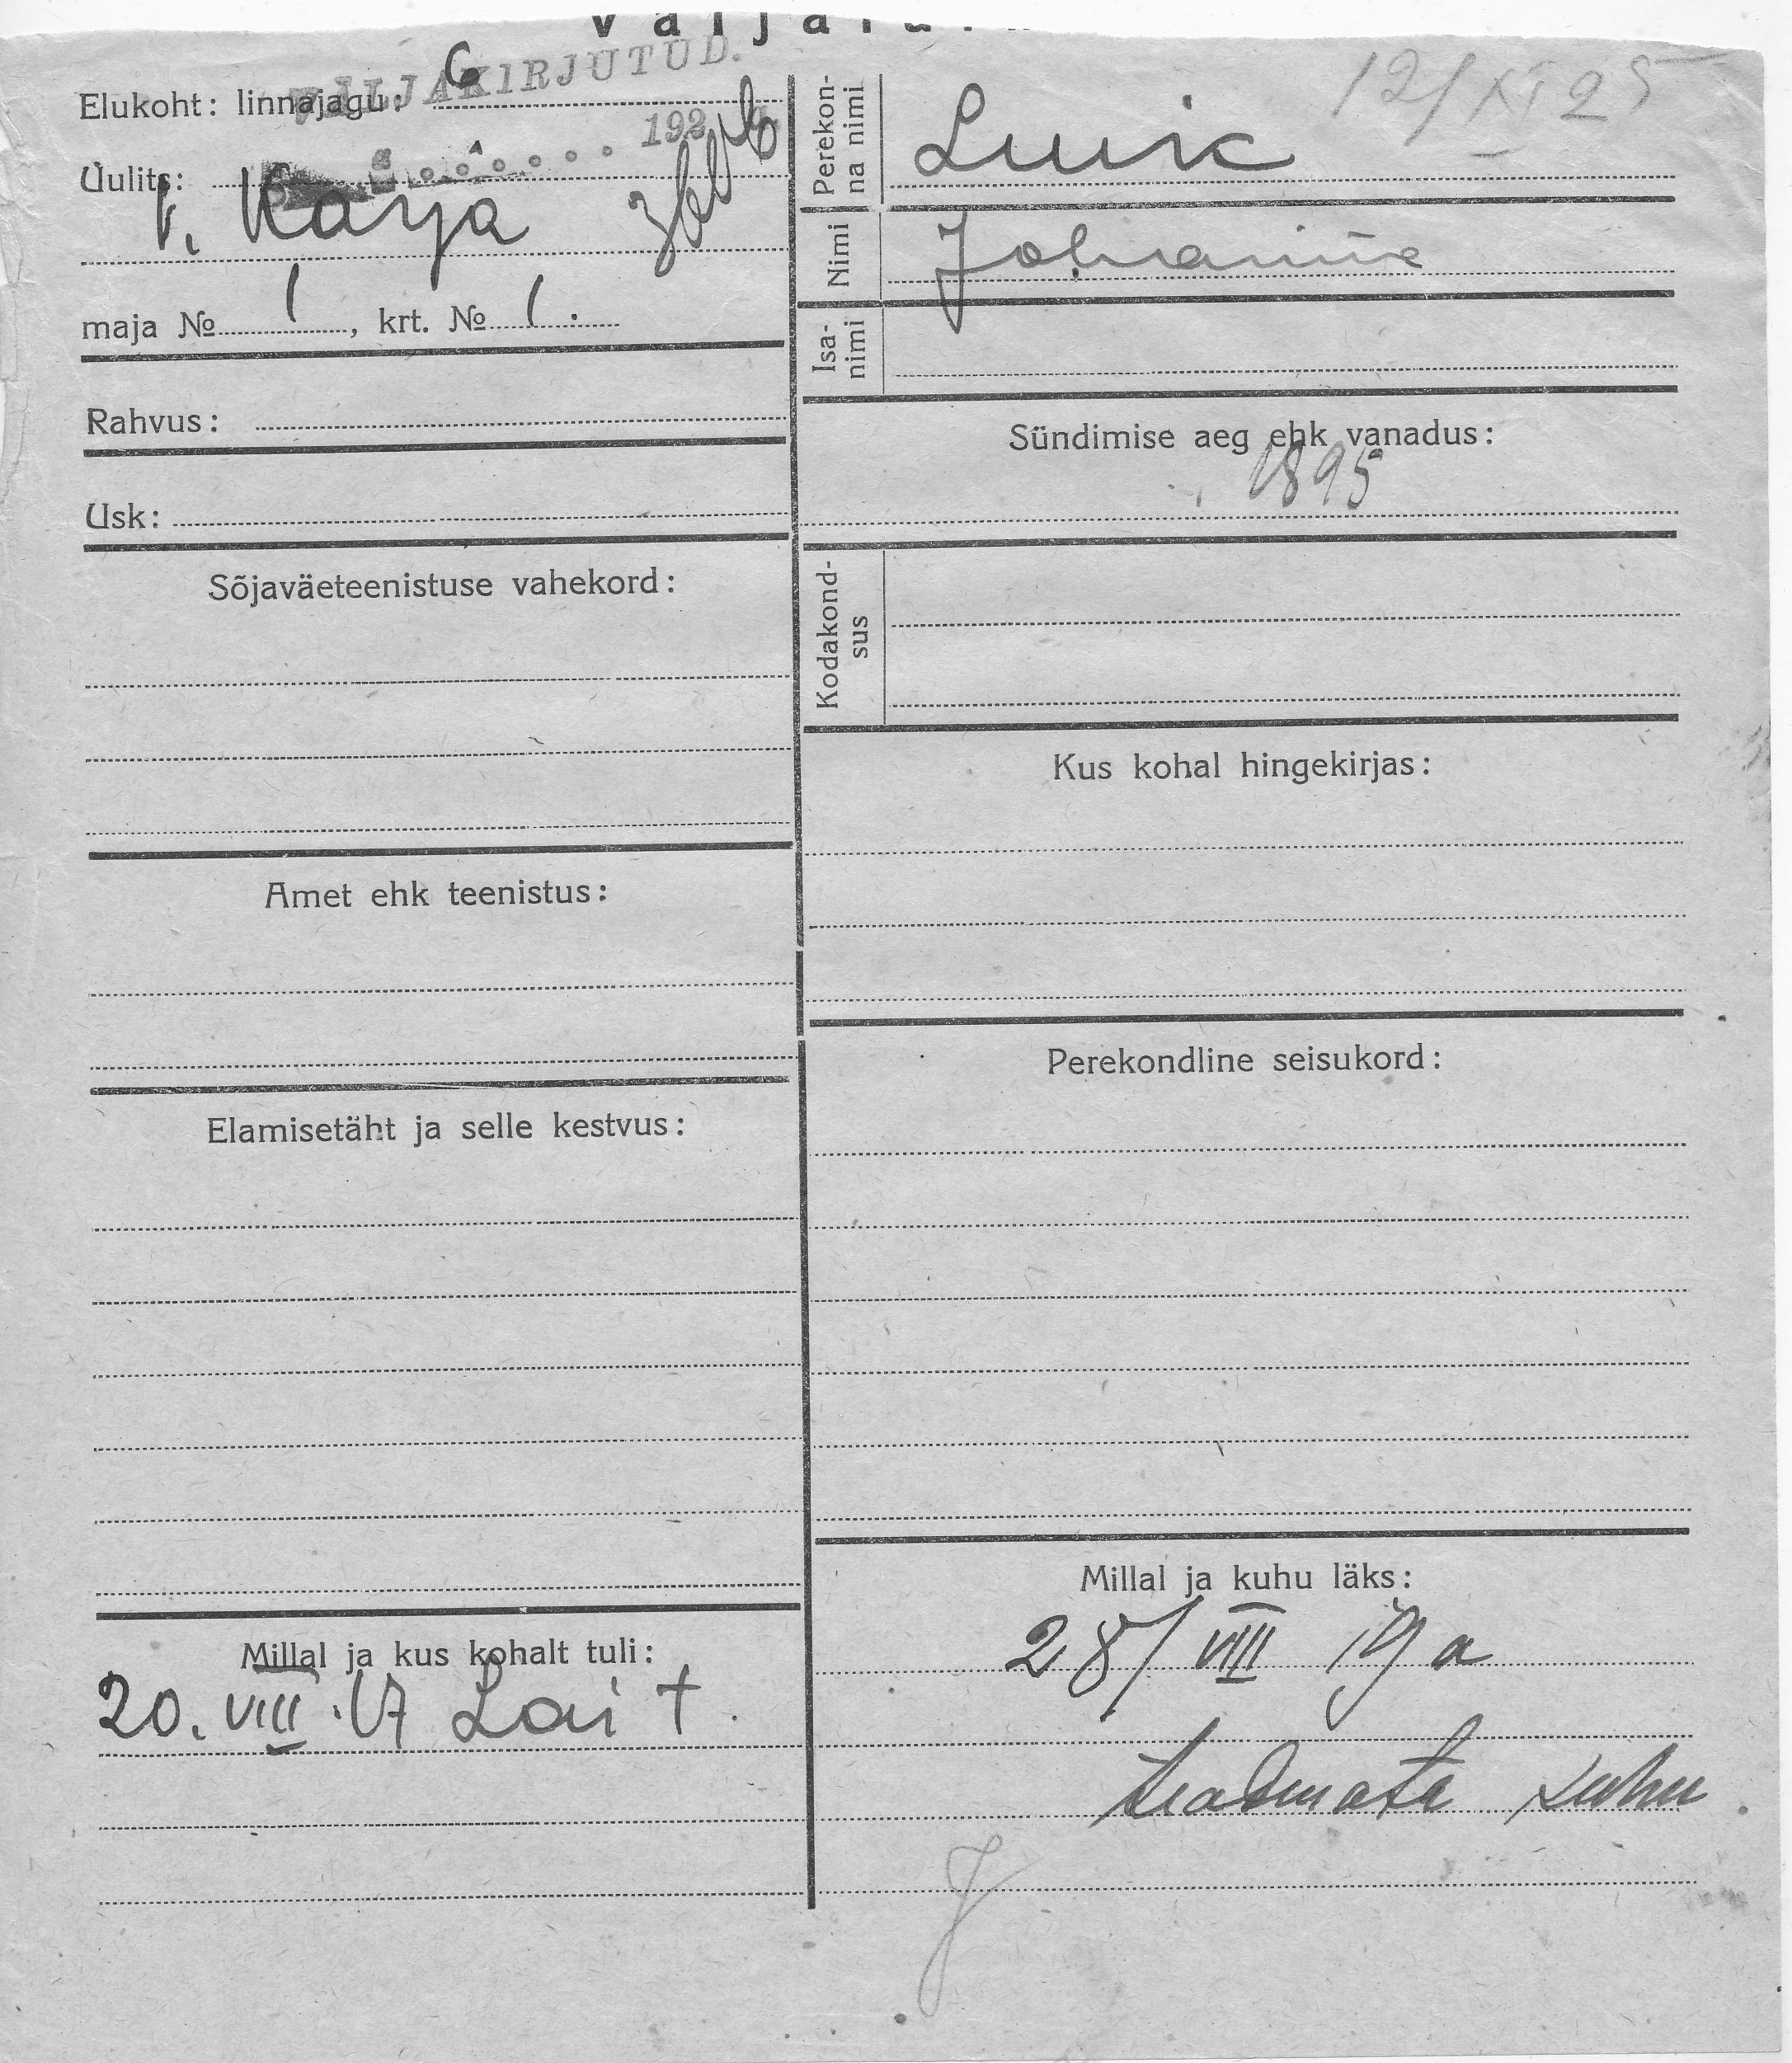 12/XI 25
VÄLJAKIRJUTUD.
192
Elukoht: linnajagu:
Uulits:
V. Karja
maja № 1, krt. № 1.
Rahvus:
Usk:
Sõjaväeteenistuse vahekord:
Amet ehk teenistus:
Elamisetäht ja selle kestvus:
Millal ja kus kohalt tuli:
20. VIII. 17 Lai t.
Perekon-
na nimi
Luik
Nimi
Johannes
Isa-
nimi
Sündimise aeg ehk vanadus:
1895
Kodakond-
sus
Kus kohal hingekirjas:
Perekondline seisukord:
Millal ja kuhu läks:
28/VIII 19 a
teadmata kuhu.